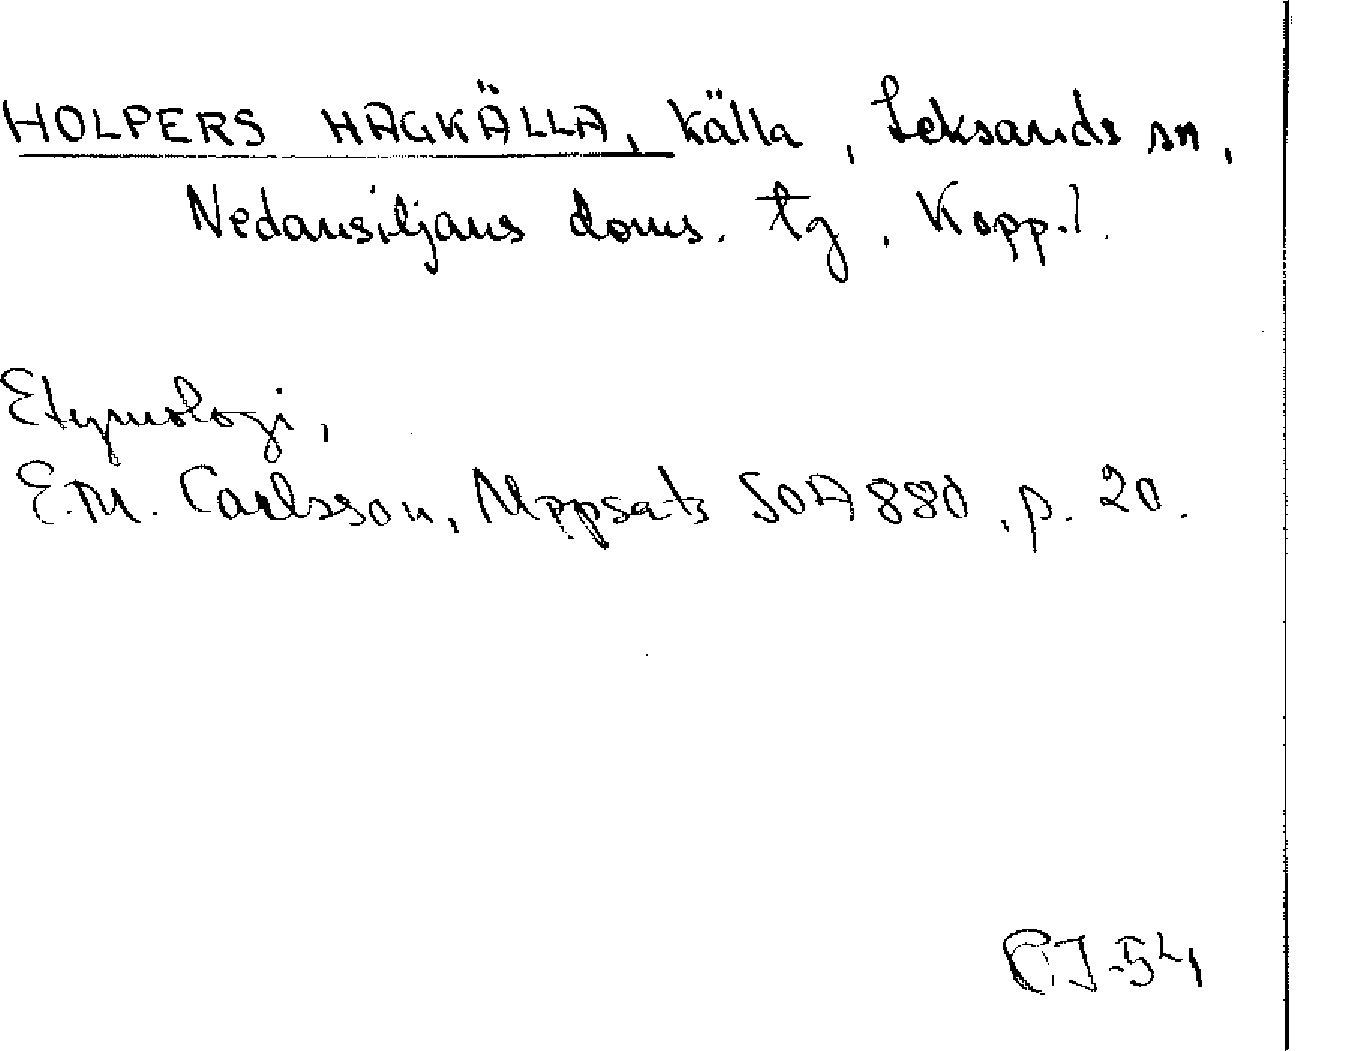 HOLPERS HAGKÄLLA, källa, Leksands sn,
Nedansiljans doms. tg, Kopp.l.
Etymologi,
E.M. Carlsson, Uppsats SOA 880, p. 20.
C.J-54